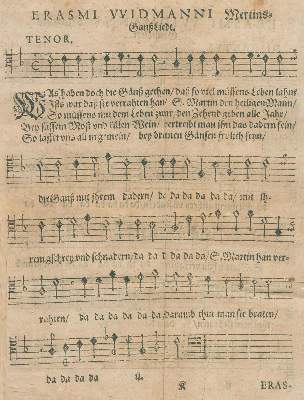 ERASMI VVIDMANNI Mertins-
Ganß Liedt.
TENOR.
WAs haben doch die Gänß gethan/ daß so viel müssens Leben lahn/
Ists war daß sie verrahten han/ S. Martin den heiligen Mann/
So müssens mit dem Leben zwar den Zehend geben alle Jahr/
Bey süssem Most und külen Wein/ vertreibt man ihn das dadern sein/
So lasset uns all in gemein/ bey bratnen Gänsen frölich seyn/
die Ganß mit ihrem dadern/ da da da da da da/ mit ih-
rem gschrey und schnadern/ da da d da da da/ S. Martin han ver-
rahten/ da da da da da da Darumb thut man sie braten/
da da da da ij.
A ERAS-